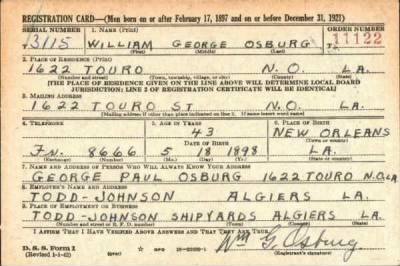 REGISTRATION CARD—(Men born on or after February 17, 1897 and on or before December 31, 1921)
SERIAL NUMBER 1. NAME (Print) ORDER NUMBER
3115 WILLIAM GEORGE OSBURG 11122
(First) (Middle) (Last)
2. PLACE OF RESIDENCE (Print)
1622 TOURO N.O. LA.
(Number and street) (Town, township, village, or city) (County) (State)
[THE PLACE OF RESIDENCE GIVEN ON THE LINE ABOVE WILL DETERMINE LOCAL BOARD
JURISDICTION; LINE 2 OF REGISTRATION CERTIFICATE WILL BE IDENTICAL]
3. MAILING ADDRESS
1622 TOURO ST N.O. LA.
[Mailing address if other than place indicated on line 2. If same insert word same]
4. TELEPHONE 5. AGE IN YEARS 6. PLACE OF BIRTH
43 NEW ORLEANS
DATE OF BIRTH (Town or county)
FN. 8666 5 18 1898 LA.
(Exchange) (Number) (Mo.) (Day) (Yr.) (State or country)
7. NAME AND ADDRESS OF PERSON WHO WILL ALWAYS KNOW YOUR ADDRESS
GEORGE PAUL OSBURG 1622 TOURO N.O. LA
8. EMPLOYER'S NAME AND ADDRESS
TODD-JOHNSON ALGIERS LA.
9. PLACE OF EMPLOYMENT OR BUSINESS
TODD-JOHNSON SHIPYARDS ALGIERS LA.
(Number and street or R. F. D. number) (Town) (County) (State)
I AFFIRM THAT I HAVE VERIFIED ABOVE ANSWERS AND THAT THEY ARE TRUE.
D. S. S. Form 1
(Revised 1-1-42) GPO Wm G. Osburg
(Registrant's signature)